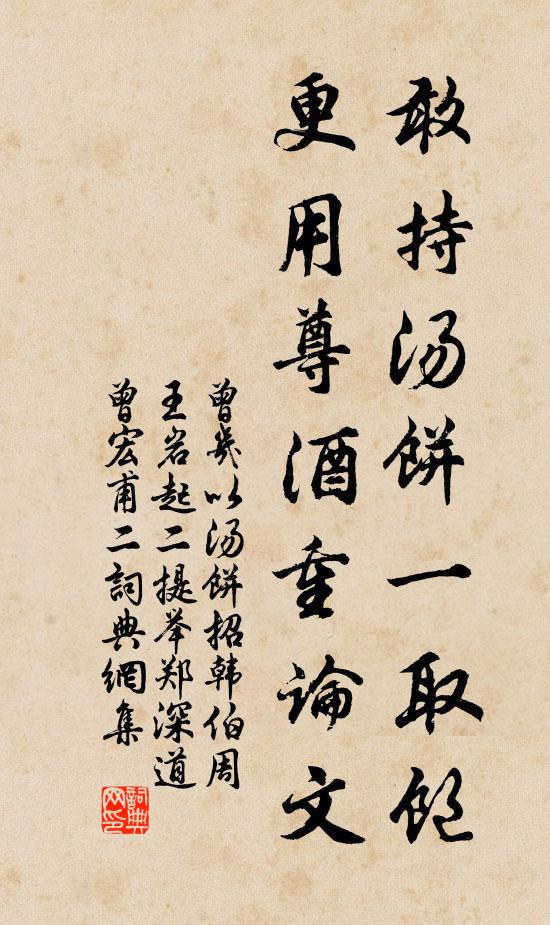 敢持汤餅一取饱
更用尊酒重論文
曾幾以汤餅招韩伯周
王岩起二提举郑深道
曾宏甫二詞典網集
詞典网印